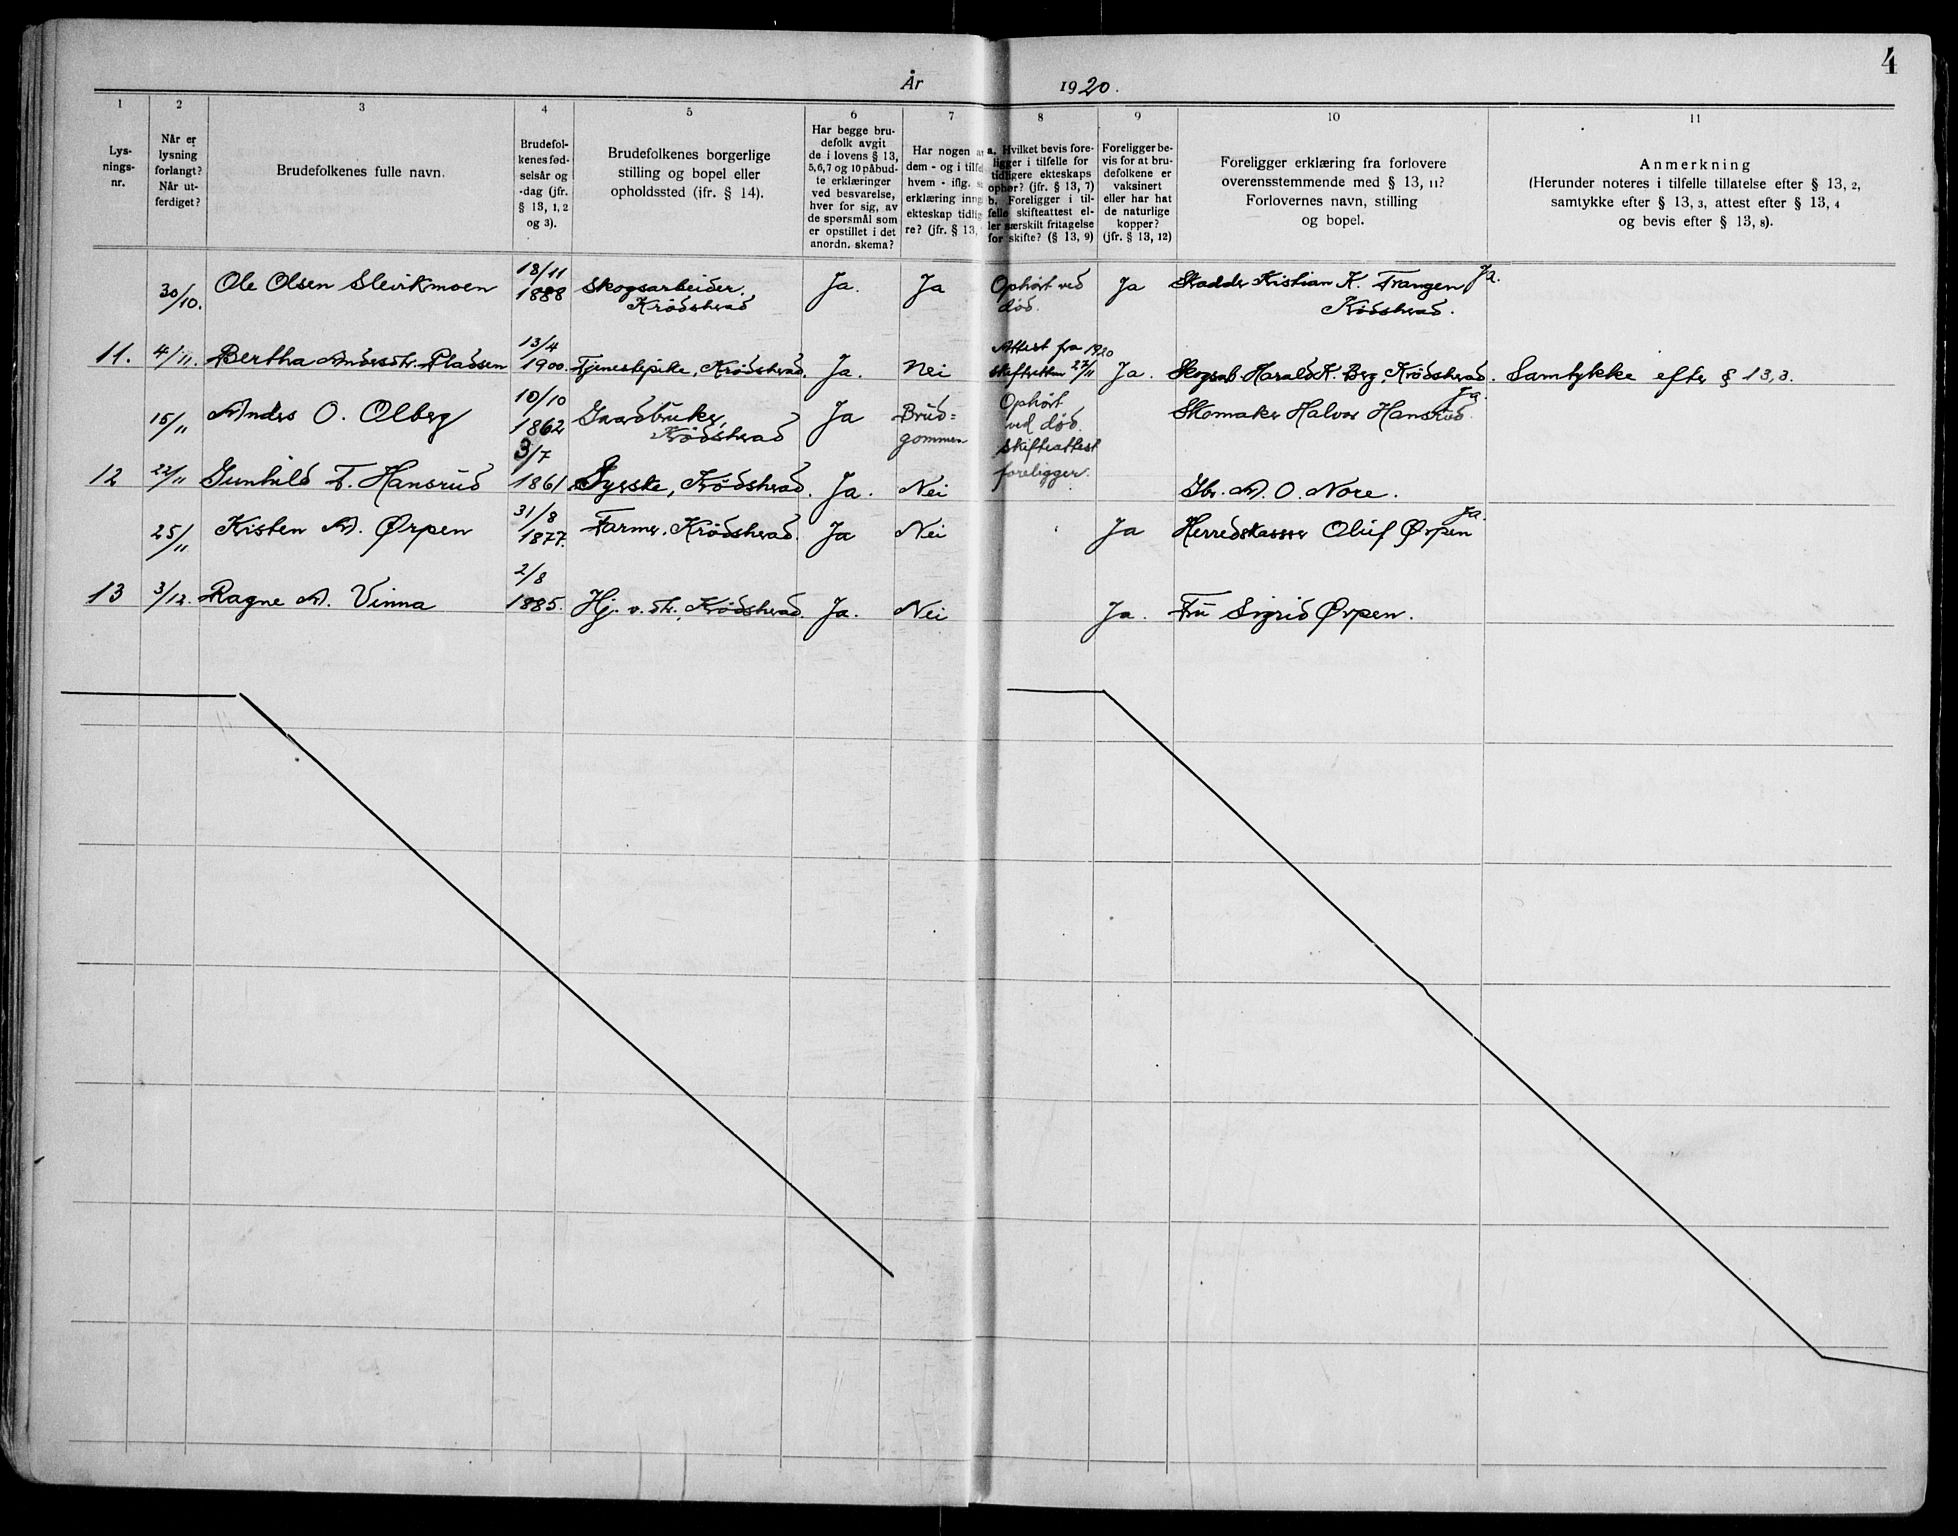 4
År 1920.
1 2 3 4 5 6 7 8 9 10 11
Lys-
nings-
nr.
Når er
lysning
forlangt?
Når ut-
ferdiget?
Brudefolkenes fulle navn.
Brudefol-
kenes fød-
selsår og
-dag (jfr.
§ 13, 1, 2
og 3).
Brudefolkenes borgerlige
stilling og bopel eller
opholdssted (ifr. § 14).
Har begge bru-
defolk avgit
de i lovens § 13,
5,6,7 og 10 påbud-
te erklæringer
ved besvarelse,
hver for sig, av
de spørsmål som
er opstillet i det
anordn. skema?
Har nogen a
dem - og i tilfe
hvem - iflg. s
erklæring inng
ekteskap tidlig
re? (jfr. § 13,
a. Hvilket bevis fore-
ligger i tilfelle for
tidligere ekteskaps
ophør? (jfr. § 13, 7)
b. Foreligger i til-
felle skifteattest el-
ler særskilt fritagelse
for skifte? (§ 13, 9)
Foreligger be-
vis for at bru-
defolkene er
vaksinert
eller har hat
de naturlige
kopper?
(jfr. § 13, 12)
Foreligger erklæring fra forlovere
overensstemmende med § 13, 11?
Forlovernes navn, stilling
og bopel.
Anmerkning
(Herunder noteres i tilfelle tillatelse efter § 13, 2,
samtykke efter § 13, 3, attest efter § 13, 4
og bevis efter § 13, 8).
30/10. Ole Olsen Slevikmoen 18/11 1888 Skogsarbeider. Krødsherad Ja. Ja Ophørt ved død. Ja Kristian K. Trangen Ja.
Krødsherad.
11. 4/11. Bertha Andersdtr. Pladsen 13/4 1900. Tjenestepike, Krødsherad. Ja. Nei Attest fra skifteretten 27/11 1920 Ja. Skogsarb. Harald K. Berg, Krødsherad. Samtykke efter § 13,3.
15/11 Anders O. Olberg 10/10 1862 Gaardbruker, Krødsherad Ja Brud=
gommen Ophørt
ved død.
Skifteattest
foreligger. Skomaker Halvor Hansrud. Ja.
12 22/11 Gunhild T. Hansrud 3/7 1861 Syerske, Krødsherad. Ja. Nei Gbr. A. O. Nore.
25/11 Kristen A. Ørpen 31/8 1877. Farmer. Krødsherad. Ja Nei Ja Herredskasserer Oluf Ørpen Ja.
13 3/12. Ragne A. Vinna 2/8 1885. Hj. v. dtr., Krødsherad. Ja. Nei Ja. Fru Sigrid Ørpen.